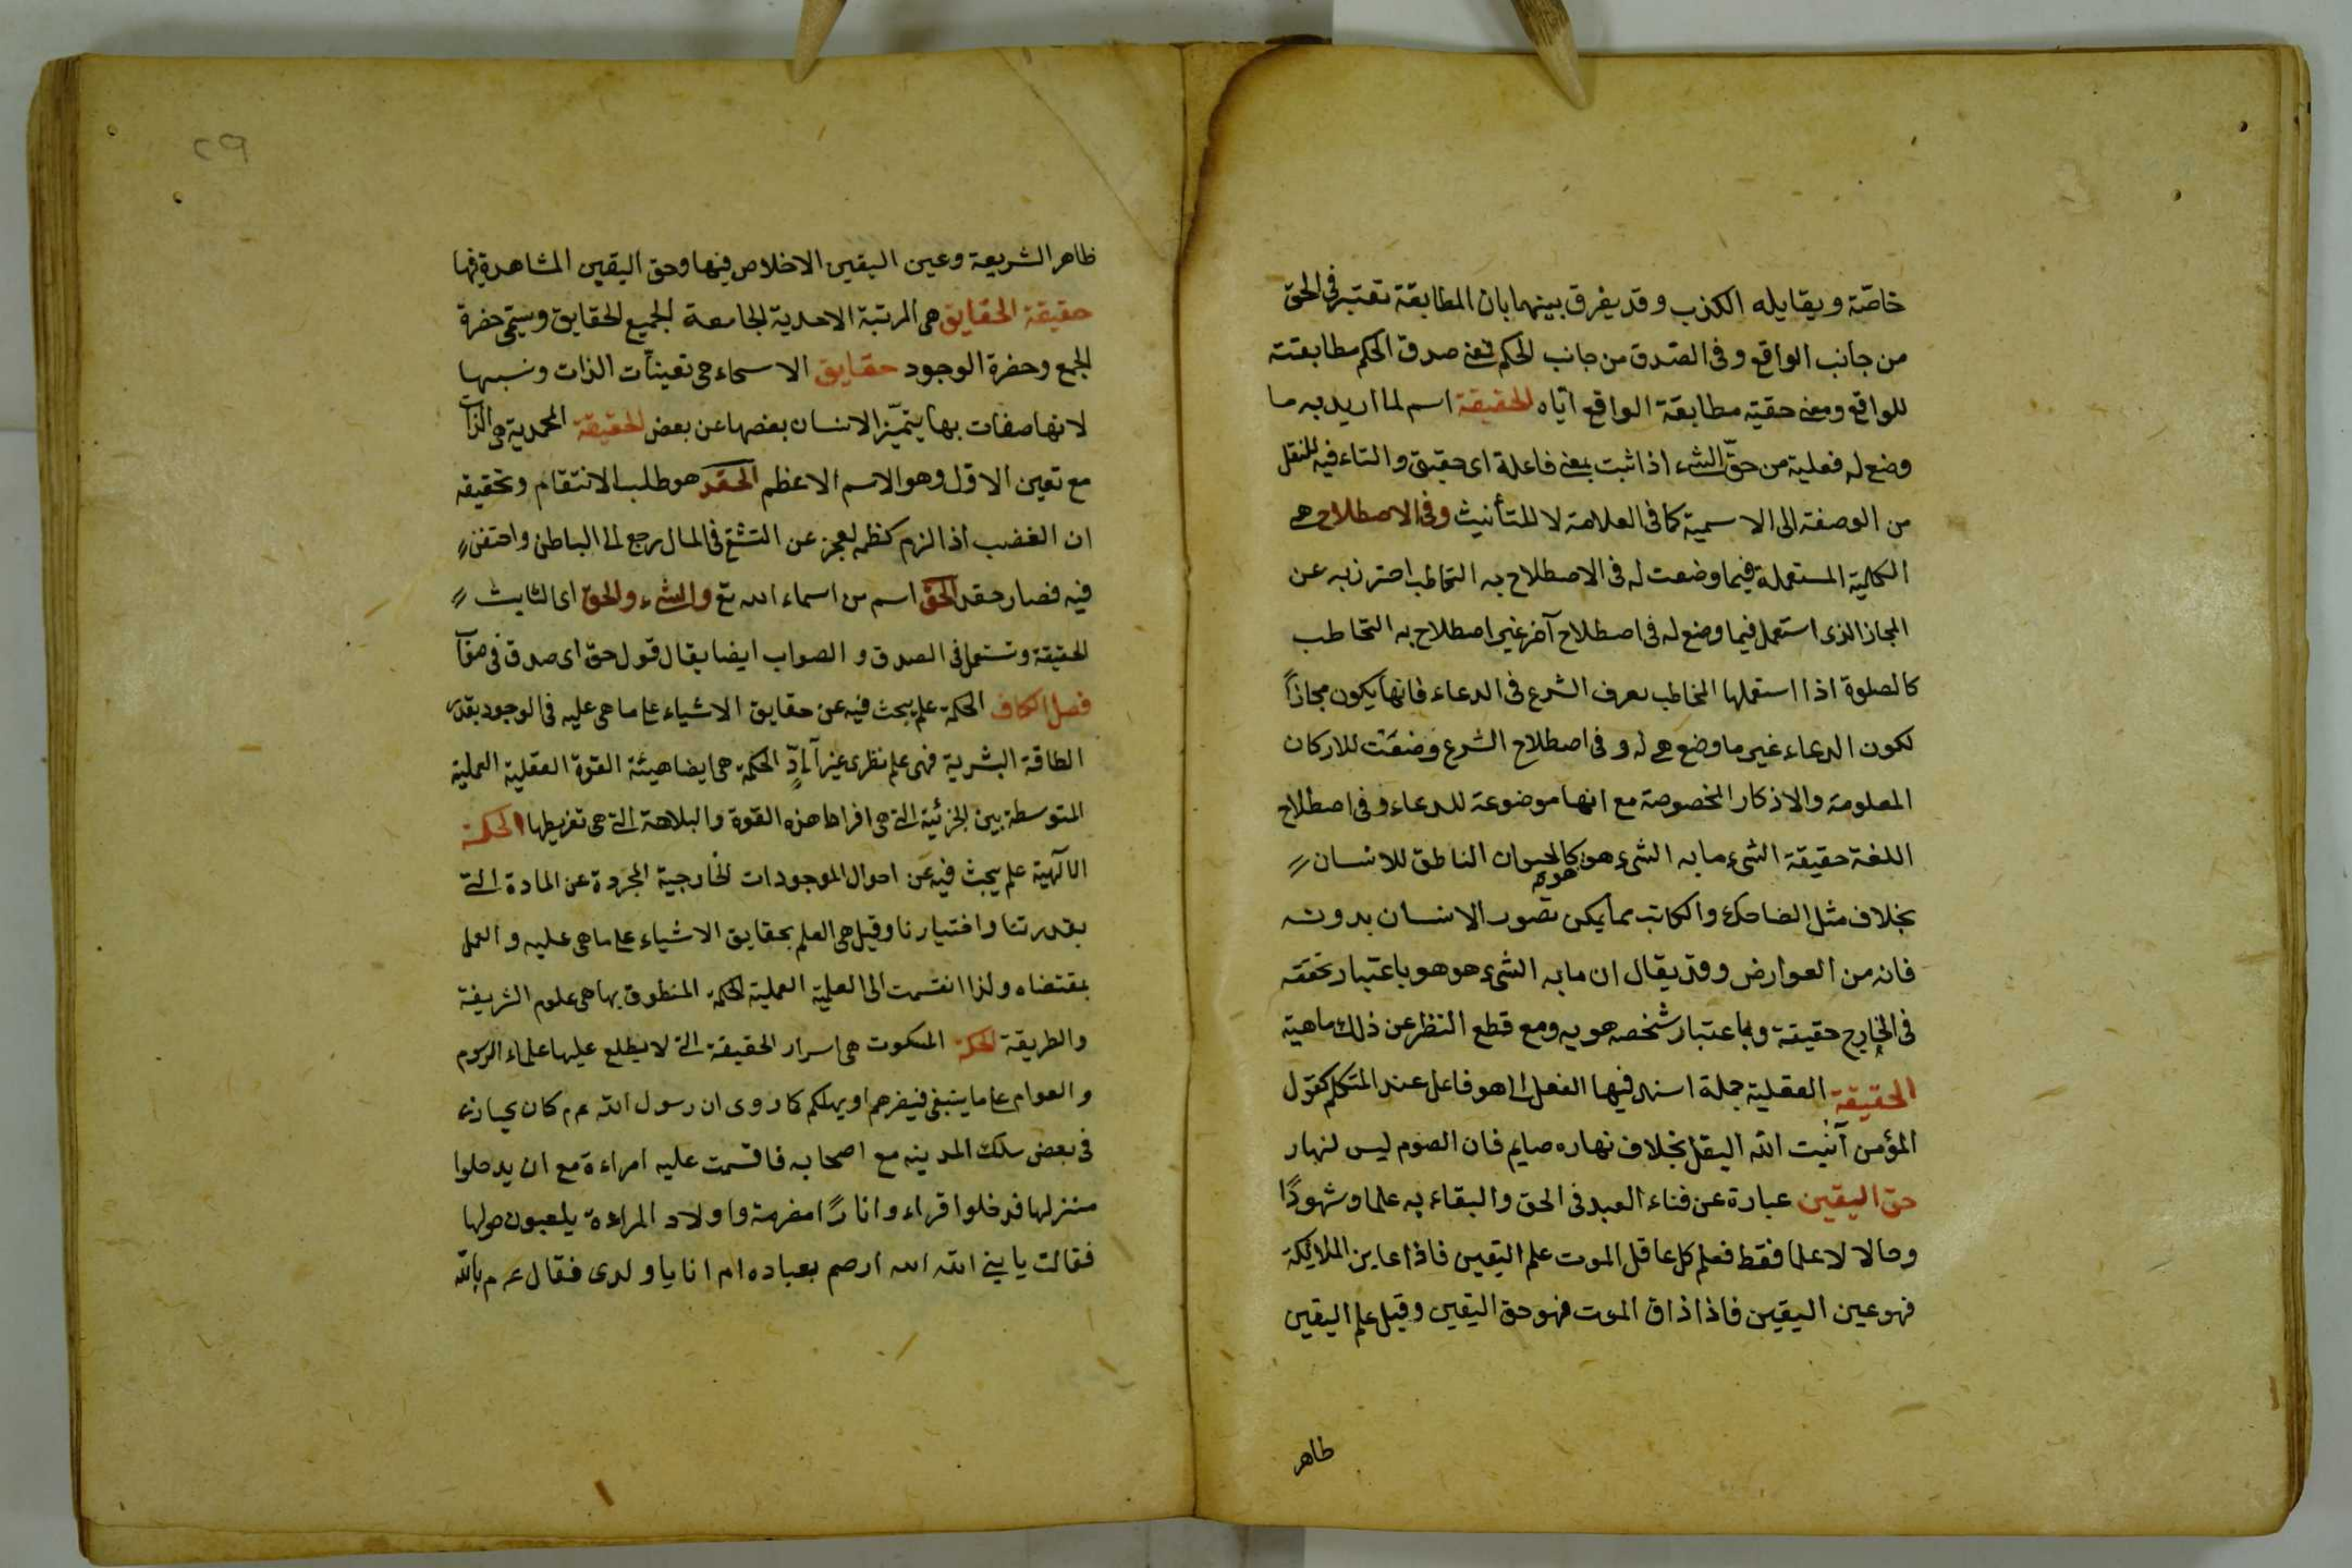 خاصّة ويقابله الكذب وقد يفرق بينهما بان المطابقة تعتبر فى الحق
من جانب الواقع وفى الصدق من جانب الحكم فمعنى صدق الحكم مطابقته
للواقع ومعنى حقيته مطابقة الواقع اياه الحقيقة اسم لما اريد به ما
وضع له فعلية من حقّ الشىء اذا ثبت بمعنى فاعلة اى حقيق والتاء فيه للنقل
من الوصفة الى الاسمية كما فى العلامة لا للتأنيث وفى الاصطلاح هى
الكلمة المستعملة فيما وضعت له فى الاصطلاح به التخاطب احترز به عن
المجاز الذى استعمل فيما وضع له فى اصطلاح آخر غير اصطلاح به التخاطب
كالصلوة اذا استعملها المخاطب بعرف الشرع فى الدعاء فانها يكون مجازاً
لكون الدعاء غير ما وضع هى له و فى اصطلاح الشرع وضعت للاركان
المعلومة والاذكار المخصوصة مع انها موضوعة للدعاء وفى اصطلاح
اللغة حقيقة الشىء ما به الشىء هو هو كالحيوان الناطق للانسان
بخلاف مثل الضاحك والكاتب مما يمكن تصور الانسان بدونه
فانه من العوارض وقد يقال ان ما به الشىء هو هو باعتبار تحققه
فى الخارج حقيقة وباعتبار شخصه هويه ومع قطع النظر عن ذلك ماهية
الحقيقة العقلية جملة اسند فيها الفعل الى ما هو فاعل عند المتكلم كقول
المؤمن انبت الله البقل بخلاف نهاره صايم فان الصوم ليس لنهار
حق اليقين عبارة عن فناء العبد فى الحق والبقاء به علما وشهودًا
وحالا لا علما فقط فعلم كل عاقل الموت علم اليقين فاذا عاين الملائكة
فهو عين اليقين فاذا ذاق الموت فهو حق اليقين وقيل علم اليقين
ظاهر
٢٩
ظاهر الشريعة وعين اليقين الاخلاص فيها وحق اليقين المشاهدة فيها
حقيقة الحقايق هى المرتبة الاحدية الجامعة لجميع الحقايق وسيمى حضرة
الجمع وحضرة الوجود حقايق الاسماء هى تعينات الذات ونسبها
لانها صفات بها يتميّز الانسان بعضها عن بعض الحقيقة المحمدية هى الذات
مع تعين الاول وهو الاسم الاعظم الحقد هو طلب الانتقام وتحقيقه
ان الغضب اذا لزم كظمه لعجز عن التشفى فى الحال رجع الى الباطن واحتقن
فيه فصار حقد الحق اسم من اسماء الله تع والشىء والحق اى الثابت
الحقيقة وتستعمل فى الصدق و الصواب ايضا يقال قول حق اى صدق فى صواب
فصل الكاف الحكمة علم يبحث فيه عن حقايق الاشياء على ما هى عليه فى الوجود بقدر
الطاقة البشرية فهى علم نظرى غير آلى الحكمة هى ايضا هيئة القوة العقلية العملية
المتوسطة بين الجزئية التى هى افراط هذه القوة والبلاهة التى هى تفريطها الحكمة
الآلهية علم يبحث فيه عن احوال الموجودات الخارجية المجردة عن المادة التى
بقدرتنا واختيارنا وقيل هى العلم بحقايق الاشياء على ما هى عليه و العمل
بمقتضاه ولذا انقسمت الى العلمية العملية الحكمة المنطوق بها هى علوم الشريفة
والطريقة الحكمة المسكوت هى اسرار الحقيقة التى لا يطلع عليها علماء الرسوم
والعوام على ما ينبغى فيضرهم او يهلكم كما روى ان رسول الله عم كان يجتاز
فى بعض سكك المدينه مع اصحابه فاقسمت عليه امراءة مع ان يدخلوا
منزلها فدخلوا قراء وا نارًا مضرمة واولاد المراءة يلعبون حولها
فقالت يا نبى الله الله ارحم بعباده ام انا باولدى فقال عم بالله